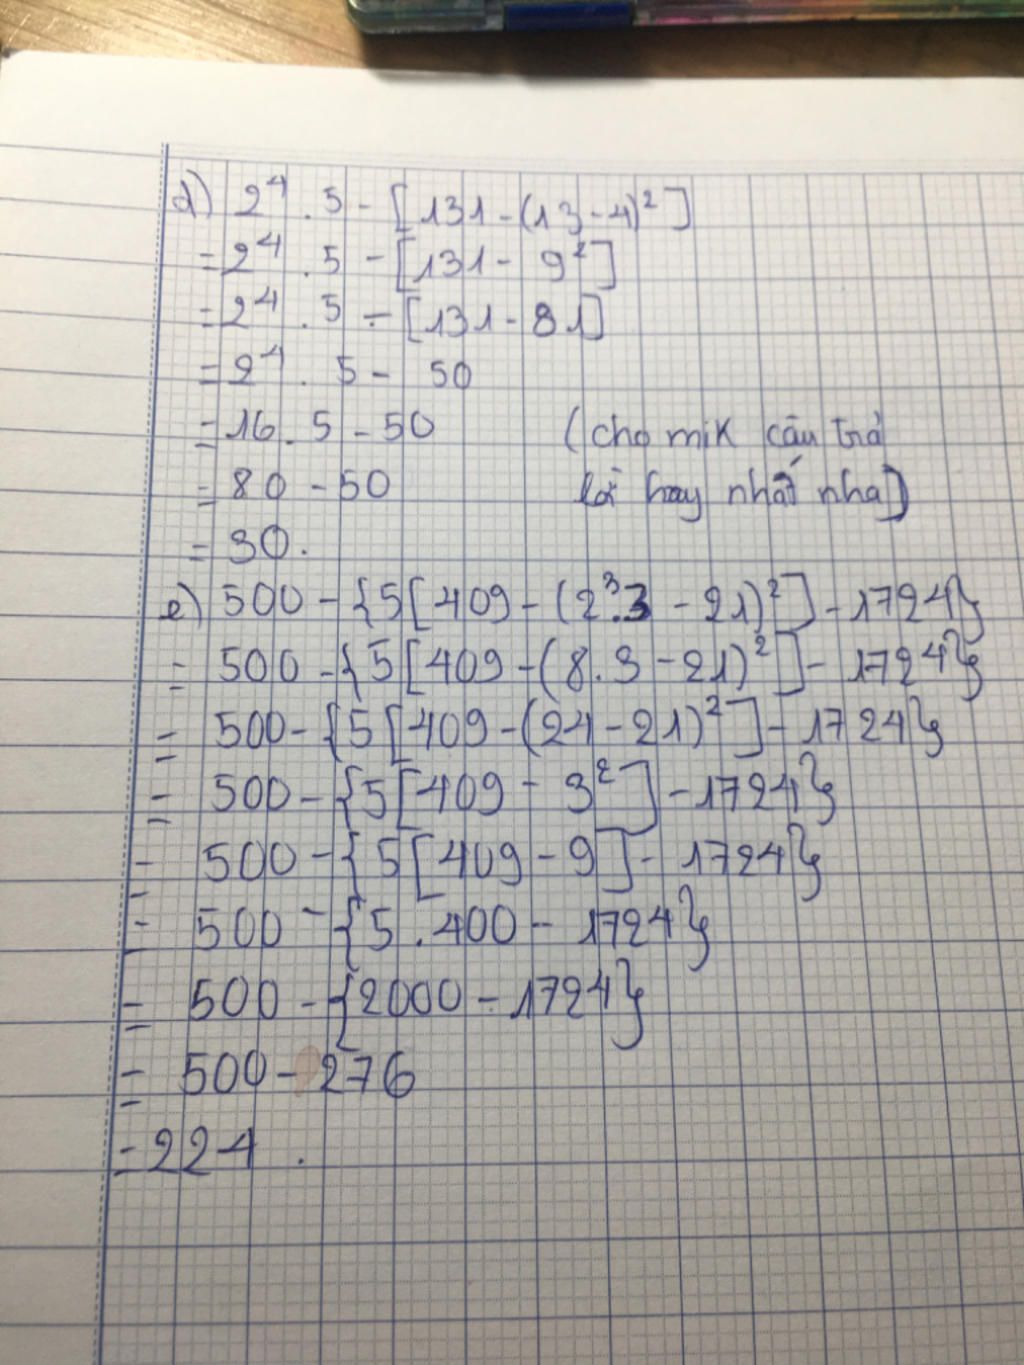 d) 2⁴ . 5 - [131 - (13 - 4)²]
= 2⁴ . 5 - [131 - 9²]
= 2⁴ . 5 - [131 - 81]
= 2⁴ . 5 - 50
= 16 . 5 - 50
(cho mik câu trả
= 80 - 50
lời hay nhất nha)
= 30.
e) 500 - {5[409 - (2³.3 - 21)²] - 1724}
= 500 - {5[409 - (8.3 - 21)²] - 1724}
= 500 - {5[409 - (24 - 21)²] - 1724}
= 500 - {5[409 - 3²] - 1724}
= 500 - {5[409 - 9] - 1724}
= 500 - {5 . 400 - 1724}
= 500 - {2000 - 1724}
= 500 - 276
= 224 .